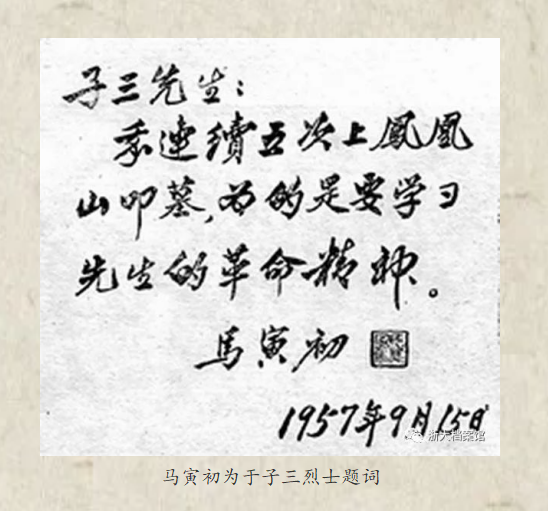 子三先生：
我連續五次上鳳凰
山叩墓,为的是要学习
先生的革命精神。
马寅初
1957年9月15日
浙大档案馆
马寅初为于子三烈士题词